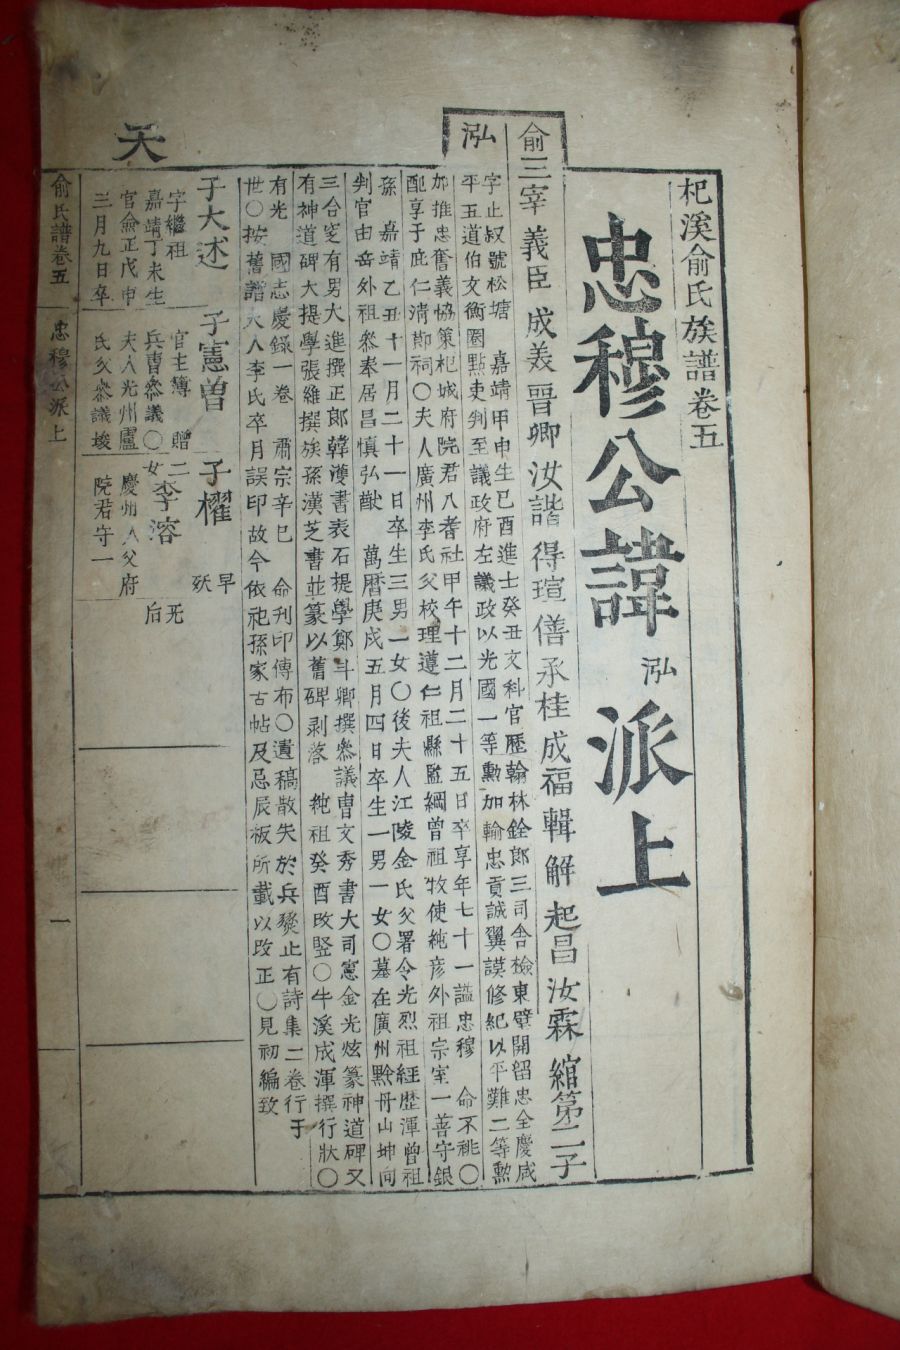 杞溪俞氏族譜卷五
忠穆公諱泓派上
俞三宰 義臣 成美 晉卿 汝諧 得瑄 僐 承桂 成福 輯 解 起昌 汝霖 綰第二子
泓
字止叔號松塘 嘉靖甲申生己酉進士癸丑文科官歷翰林銓郎三司舍檢東壁開留忠全慶咸
平五道伯文衡圈點吏判至議政府左議政以光國一等勳加輸忠貢誠翼謨修紀以平難二等勳
加推忠奮義協策杞城府院君入耆社甲午十二月二十五日卒享年七十一謚忠穆 命不祧〇
配享于庇仁清節祠〇夫人廣州李氏父校理遵仁祖縣監綱曾祖牧使純彥外祖宗室一善守銀
孫 嘉靖乙丑十一月二十一日卒生三男一女〇後夫人江陵金氏父署令光烈祖經歷渾曾祖
判官由岳外祖參奉居昌慎弘猷 萬曆庚戌五月四日卒生一男一女〇墓在廣州黔丹山坤向
三合窆有男大進撰正郎韓濩書表石提學鄭斗卿撰參議曺文秀書大司憲金光炫篆神道碑又
有神道碑大提學張維撰族孫漢芝書並篆以舊碑剥落 純祖癸酉改竪〇牛溪成渾撰行狀〇
有光 國志慶錄一卷 肅宗辛巳 命刊印傳布〇遺稿散失於兵燹止有詩集二卷行于
世〇按舊譜夫人李氏卒月誤印故今依祀孫家古帖及忌辰板所載以改正〇見初編致
天
子大述
字繼祖
嘉靖丁未生
官僉正戊申
三月九日卒
子憲曽
官主簿 贈
兵曹參議〇
夫人光州盧
氏父參議埈
子櫂
早
妖
二
女李溶
慶州人父府
院君守一
无
后
俞氏譜卷五
忠穆公派上
一